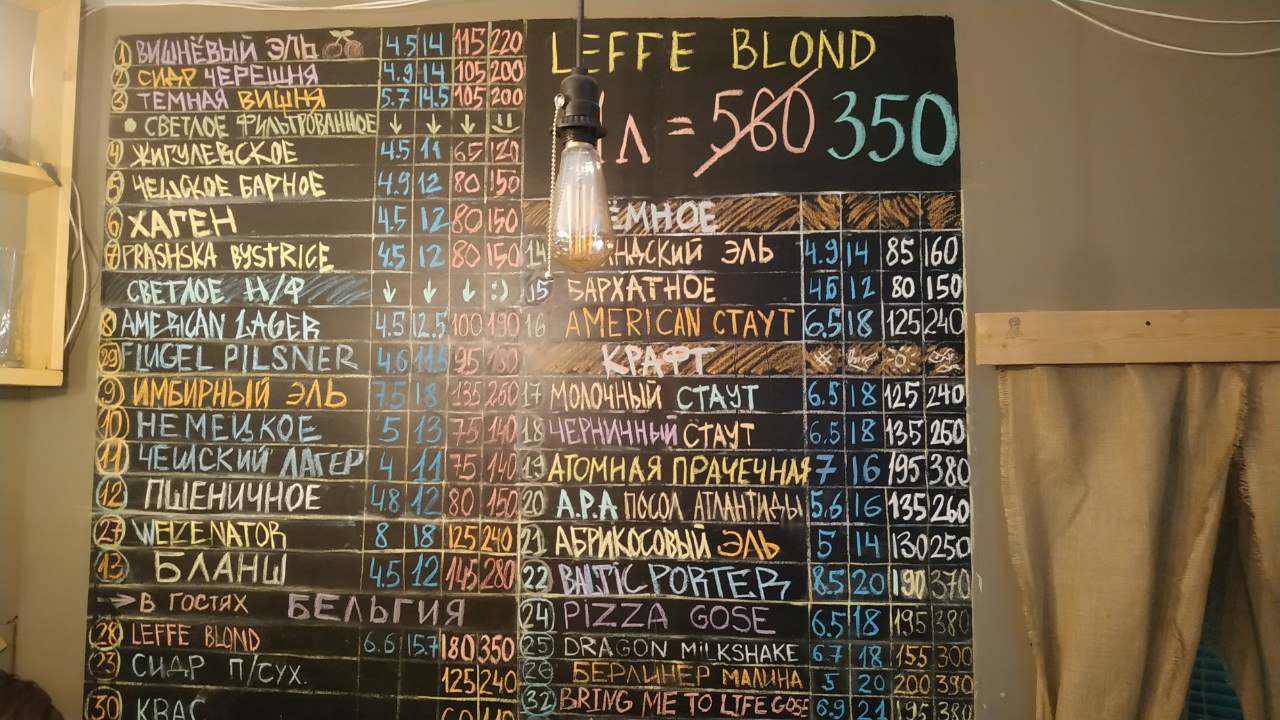 1 ВИШНЁВЫЙ ЭЛЬ 4.5 14 115 220
2 СИДР ЧЕРЕШНЯ 4.9 14 105 200
3 ТЕМНАЯ ВИШНЯ 5.7 14.5 105 200
СВЕТЛОЕ ФИЛЬТРОВАННОЕ
4 ЖИГУЛЕВСКОЕ 4.5 11 65 120
5 ЧЕШСКОЕ БАРНОЕ 4.9 12 80 150
6 ХАГЕН 4.5 12 80 150
7 PRASHSKA BYSTRICE 4.5 12 80 150
СВЕТЛОЕ Н/Ф
8 AMERICAN LAGER 4.5 12.5 100 190
29 FLUGEL PILSNER 4.6 11.5 95 180
9 ИМБИРНЫЙ ЭЛЬ 7.5 18 135 260
10 НЕМЕЦКОЕ 5 13 75 140
11 ЧЕШСКИЙ ЛАГЕР 4 11 75 140
12 ПШЕНИЧНОЕ 4.8 12 80 150
27 WEIZENATOR 8 18 125 240
13 БЛАНШ 4.5 12 145 280
→ В ГОСТЯХ БЕЛЬГИЯ
28 LEFFE BLOND 6.6 15.7 180 350
23 СИДР П/СУХ. 125 240
30 КВАС
LEFFE BLOND
Л = 560 350
14 ЭЛЬ 4.9 14 85 160
15 БАРХАТНОЕ 12 80 150
16 AMERICAN СТАУТ 6.5 18 125 240
КРАФТ
17 МОЛОЧНЫЙ СТАУТ 6.5 18 125 240
18 ЧЕРНИЧНЫЙ СТАУТ 6.5 18 135 260
19 АТОМНАЯ ПРАЧЕЧНАЯ 7 16 195 380
20 A.P.A ПОСОЛ АТЛАНТИДЫ 5.6 16 135 260
21 АБРИКОСОВЫЙ ЭЛЬ 5 14 130 250
22 BALTIC PORTER 8.5 20 190 370
24 PIZZA GOSE 6.5 18 195 380
25 DRAGON MILKSHAKE 6.7 18 155 300
БЕРЛИНЕР МАЛИНА 5 20 200 390
32 BRING ME TO LIFE GOSE 6.9 21 195 380